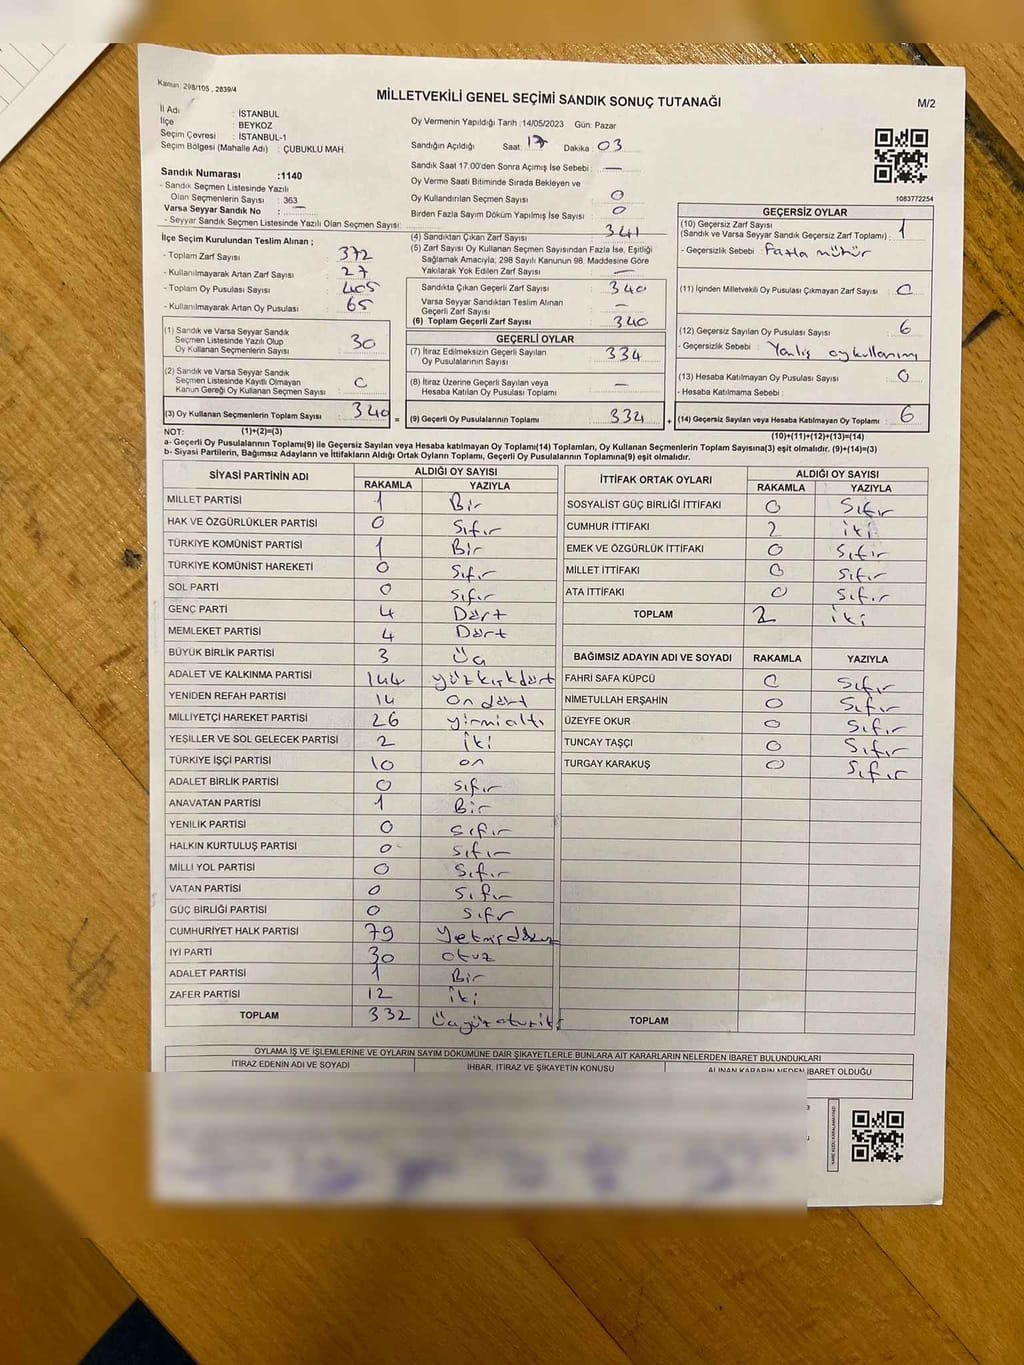 Kanun: 298/105 , 2839/4
MİLLETVEKİLİ GENEL SEÇİMİ SANDIK SONUÇ TUTANAĞI
M/2
İl Adı : İSTANBUL
İlçe : BEYKOZ
Seçim Çevresi : İSTANBUL-1
Seçim Bölgesi (Mahalle Adı) : ÇUBUKLU MAH.
Sandık Numarası :1140
- Sandık Seçmen Listesinde Yazılı
Olan Seçmenlerin Sayısı : 363
Varsa Seyyar Sandık No :
- Seyyar Sandık Listesinde Yazılı Olan Seçmen Sayısı:
Oy Vermenin Yapıldığı Tarih :14/05/2023 Gün: Pazar
Sandığın Açıldığı Saat: 17 Dakika : 03
Sandık Saat 17.00'den Sonra Açımış İse Sebebi : —
Oy Verme Saati Bitiminde Sırada Bekleyen ve
Oy Kullandırılan Seçmen Sayısı : 0
Birden Fazla Sayım Döküm Yapılmış İse Sayısı : 0
1083772254
İlçe Seçim Kurulundan Teslim Alınan ;
- Toplam Zarf Sayısı : 372
- Kullanılmayarak Artan Zarf Sayısı : 27
- Toplam Oy Pusulası Sayısı : 405
- Kullanılmayarak Artan Oy Pusulası : 65
(1) Sandık ve Varsa Seyyar Sandık
Seçmen Listesinde Yazılı Olup
Oy Kullanan Seçmenlerin Sayısı : 30
(2) Sandık ve Varsa Seyyar Sandık
Seçmen Listesinde Kayıtlı Olmayan
Kanun Gereği Oy Kullanan Seçmen Sayısı : 0
(3) Oy Kullanan Seçmenlerin Toplam Sayısı : 340
(1)+(2)=(3)
(4) Sandıktan Çıkan Zarf Sayısı : 341
(5) Zarf Sayısı Oy Kullanan Seçmen Sayısından Fazla İse, Eşitliği
Sağlamak Amacıyla, 298 Sayılı Kanunun 98. Maddesine Göre
Yakılarak Yok Edilen Zarf Sayısı : —
Sandıkta Çıkan Geçerli Zarf Sayısı : 340
Varsa Seyyar Sandıktan Teslim Alınan
Geçerli Zarf Sayısı : —
(6) Toplam Geçerli Zarf Sayısı : 340
GEÇERLİ OYLAR
(7) İtiraz Edilmeksizin Geçerli Sayılan
Oy Pusulalarının Sayısı : 334
(8) İtiraz Üzerine Geçerli Sayılan veya
Hesaba Katılan Oy Pusulaları Toplamı : —
= (9) Geçerli Oy Pusulalarının Toplamı : 334 +
GEÇERSİZ OYLAR
(10) Geçersiz Zarf Sayısı
(Sandık ve Varsa Seyyar Sandık Geçersiz Zarf Toplamı) : 1
- Geçersizlik Sebebi : Fazla mühür
(11) İçinden Milletvekili Oy Pusulası Çıkmayan Zarf Sayısı : 0
(12) Geçersiz Sayılan Oy Pusulası Sayısı : 6
- Geçersizlik Sebebi : Yanlış oy kullanımı
(13) Hesaba Katılmayan Oy Pusulası Sayısı : 0
- Hesaba Katılmama Sebebi :
(14) Geçersiz Sayılan veya Hesaba Katılmayan Oy Toplamı : 6
(10)+(11)+(12)+(13)=(14)
NOT:
a- Geçerli Oy Pusulalarının Toplamı(9) ile Geçersiz Sayılan veya Hesaba katılmayan Oy Toplamı(14) Toplamları, Oy Kullanan Seçmenlerin Toplam Sayısına(3) eşit olmalıdır. (9)+(14)=(3)
b- Siyasi Partilerin, Bağımsız Adayların ve İttifakların Aldığı Ortak Oyların Toplamı, Geçerli Oy Pusulalarının Toplamına(9) eşit olmalıdır.
SİYASİ PARTİNİN ADI ALDIĞI OY SAYISI
RAKAMLA YAZIYLA
MİLLET PARTİSİ 1 Bir
HAK VE ÖZGÜRLÜKLER PARTİSİ 0 Sıfır
TÜRKİYE KOMÜNİST PARTİSİ 1 Bir
TÜRKİYE KOMÜNİST HAREKETİ 0 Sıfır
SOL PARTİ 0 Sıfır
GENÇ PARTİ 4 Dört
MEMLEKET PARTİSİ 4 Dört
BÜYÜK BİRLİK PARTİSİ 3 Üç
ADALET VE KALKINMA PARTİSİ 144 yüzkırkdört
YENİDEN REFAH PARTİSİ 14 on dört
MİLLİYETÇİ HAREKET PARTİSİ 26 yirmialtı
YEŞİLLER VE SOL GELECEK PARTİSİ 2 İki
TÜRKİYE İŞÇİ PARTİSİ 10 on
ADALET BİRLİK PARTİSİ 0 Sıfır
ANAVATAN PARTİSİ 1 Bir
YENİLİK PARTİSİ 0 Sıfır
HALKIN KURTULUŞ PARTİSİ 0 Sıfır
MİLLİ YOL PARTİSİ 0 Sıfır
VATAN PARTİSİ 0 Sıfır
GÜÇ BİRLİĞİ PARTİSİ 0 Sıfır
CUMHURİYET HALK PARTİSİ 79 Yetmişdokuz
İYİ PARTİ 30 otuz
ADALET PARTİSİ 1 Bir
ZAFER PARTİSİ 12 iki
TOPLAM 332 Üçyüzotuziki
İTTİFAK ORTAK OYLARI ALDIĞI OY SAYISI
RAKAMLA YAZIYLA
SOSYALİST GÜÇ BİRLİĞİ İTTİFAKI 0 Sıfır
CUMHUR İTTİFAKI 2 iki
EMEK VE ÖZGÜRLÜK İTTİFAKI 0 Sıfır
MİLLET İTTİFAKI 0 Sıfır
ATA İTTİFAKI 0 Sıfır
TOPLAM 2 iki
BAĞIMSIZ ADAYIN ADI VE SOYADI RAKAMLA YAZIYLA
FAHRİ SAFA KÜPCÜ 0 Sıfır
NİMETULLAH ERŞAHİN 0 Sıfır
ÜZEYFE OKUR 0 Sıfır
TUNCAY TAŞÇI 0 Sıfır
TURGAY KARAKUŞ 0 Sıfır
TOPLAM
OYLAMA İŞ VE İŞLEMLERİNE VE OYLARIN SAYIM DÖKÜMÜNE DAİR ŞİKAYETLERLE BUNLARA AİT KARARLARIN NELERDEN İBARET BULUNDUKLARI
İTİRAZ EDENİN ADI VE SOYADI İHBAR, İTİRAZ VE ŞİKAYETİN KONUSU ALINAN KARARIN NEDEN İBARET OLDUĞU